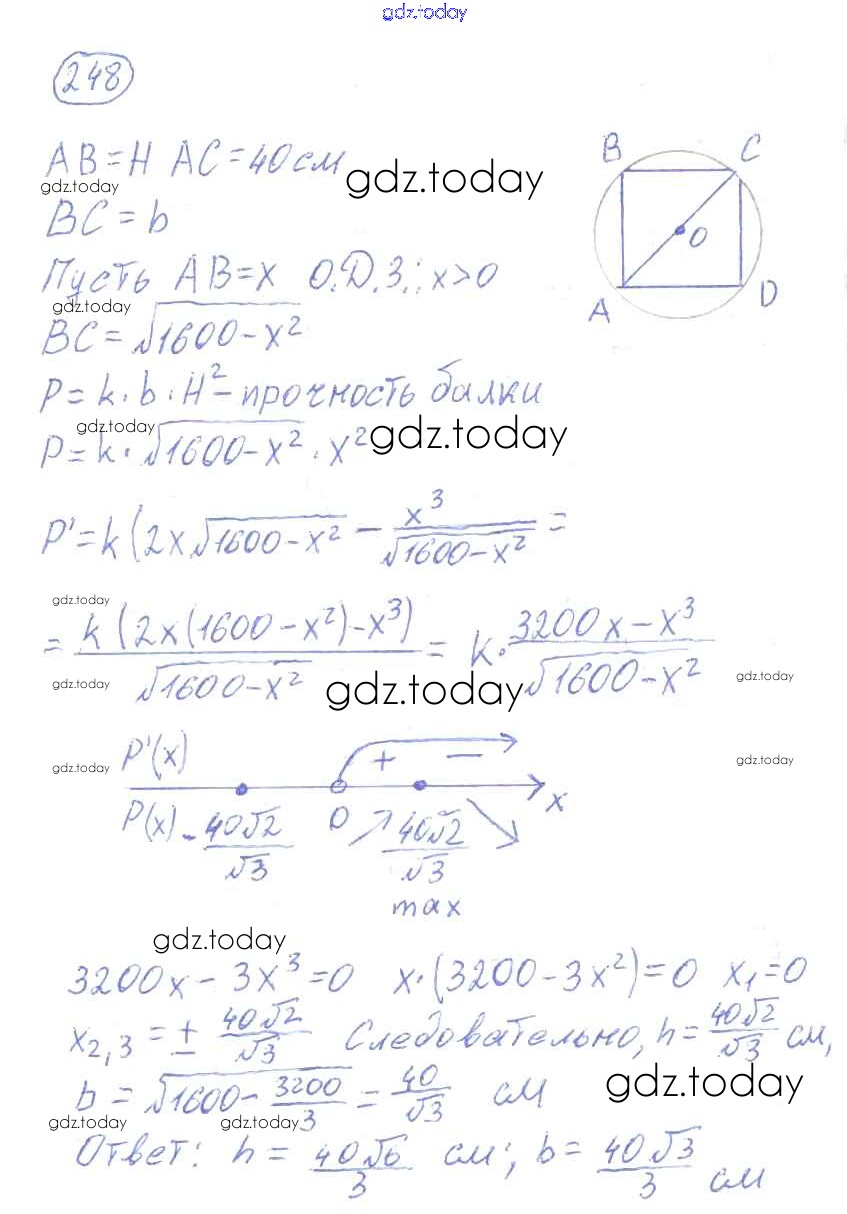 gdz.today
248
AB=H AC=40см
gdz.today
gdz.today
BC=b
Пусть AB=x О.Д.З.: x>0
gdz.today
BC=√(1600-x²)
P=k·b·H²-прочность балки
gdz.today
gdz.today
P=k·√(1600-x²)·x²
P'=k(2x√(1600-x²) - x³/√(1600-x²) =
gdz.today
= k(2x(1600-x²)-x³)/√(1600-x²) = k·(3200x-x³)/√(1600-x²)
gdz.today
gdz.today
gdz.today
P'(x) + -
gdz.today
gdz.today
x
P(x) -40√2/√3 0 40√2/√3
max
gdz.today
3200x-3x³=0 x·(3200-3x²)=0 x₁=0
x₂,₃=±40√2/√3 Следовательно, h=40√2/√3 см,
b=√(1600-3200/3)=40/√3 см
gdz.today
gdz.today
gdz.today
Ответ: h=40√6/3 см; b=40√3/3 см
B
C
O
A
D